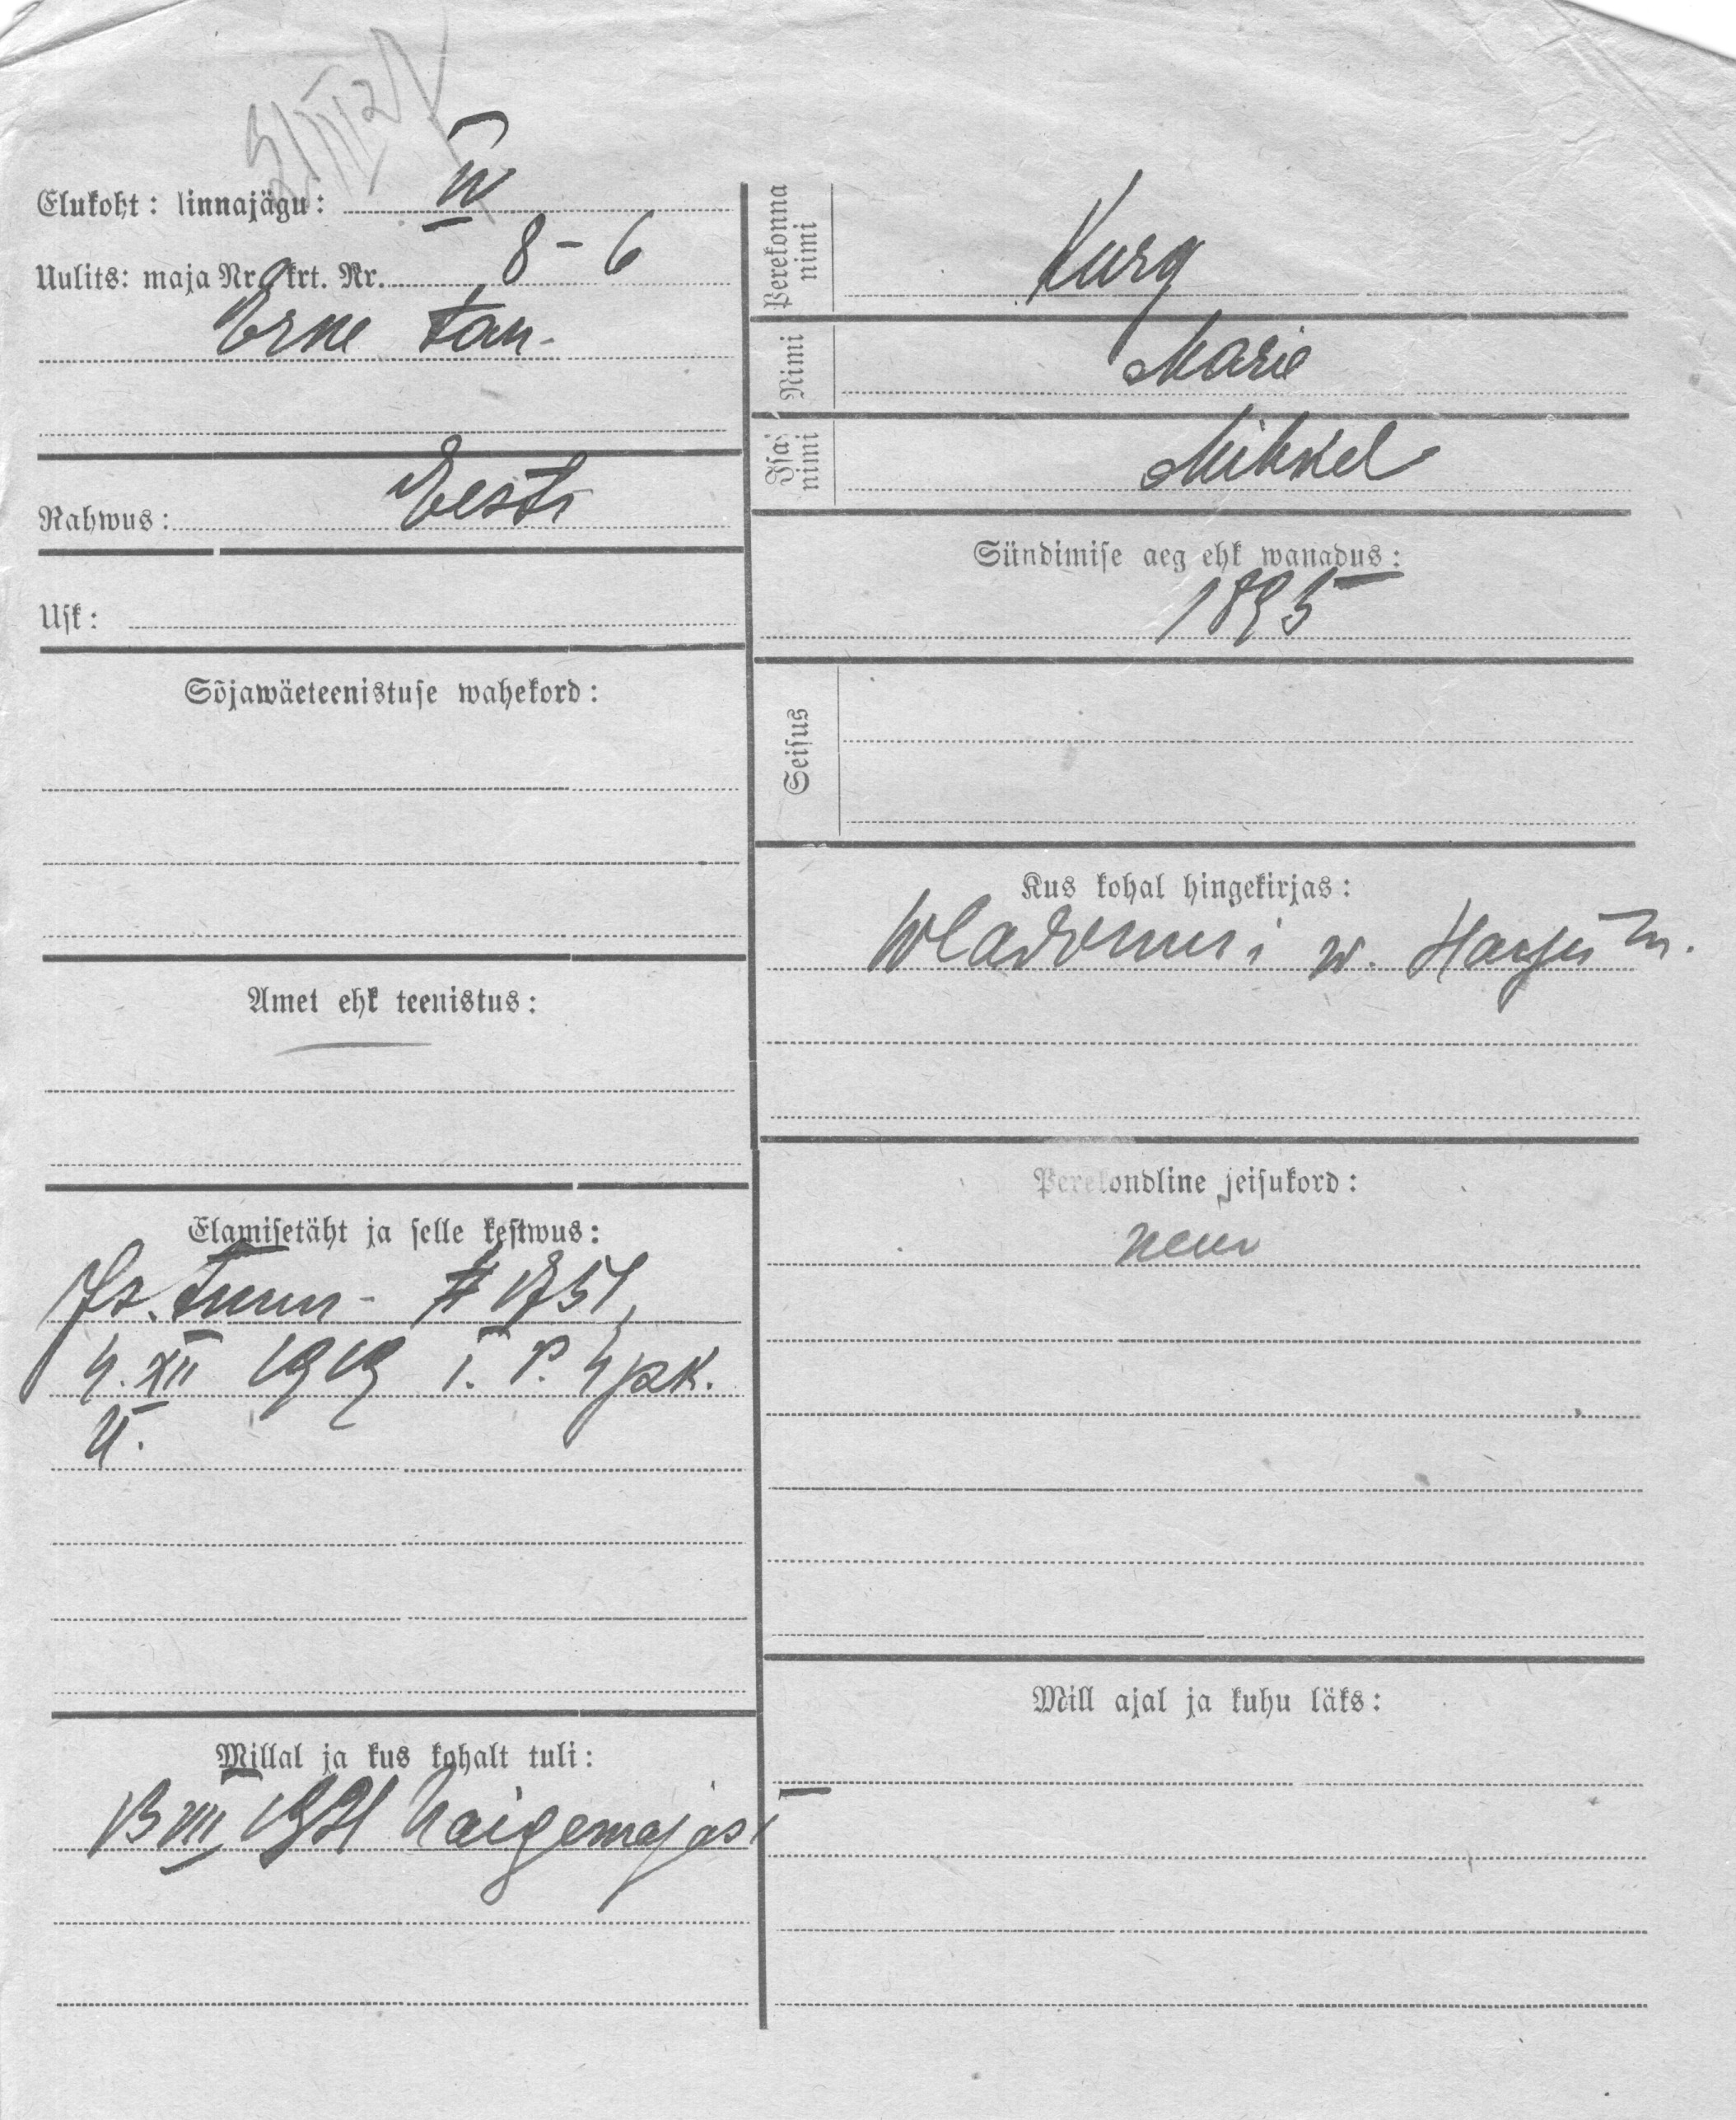 Elukoht: linnajagu: IV
Uulits: maja Nr. krt. Nr. 8 - 6
Erne tän.
Rahwus: Eesti
Usk:
Sõjawäeteenistuse wahekord:
Amet ehk teenistus:
Elamisetäht ja selle kestwus:
Is. tunn-
4. XII 1919 I. P. 4 jsk.
Millal ja kus kohalt tuli:
13 VIII 1921 haigemajast
Perekonna nimi Kurg
Nimi Marie
Isa nimi Mihkel
Sündimise aeg ehk wanadus:
1895
Seisus
Kus kohal hingekirjas:
w. Harju m.
Perekondline seisukord:
neiu
Mill ajal ja kuhu läks: